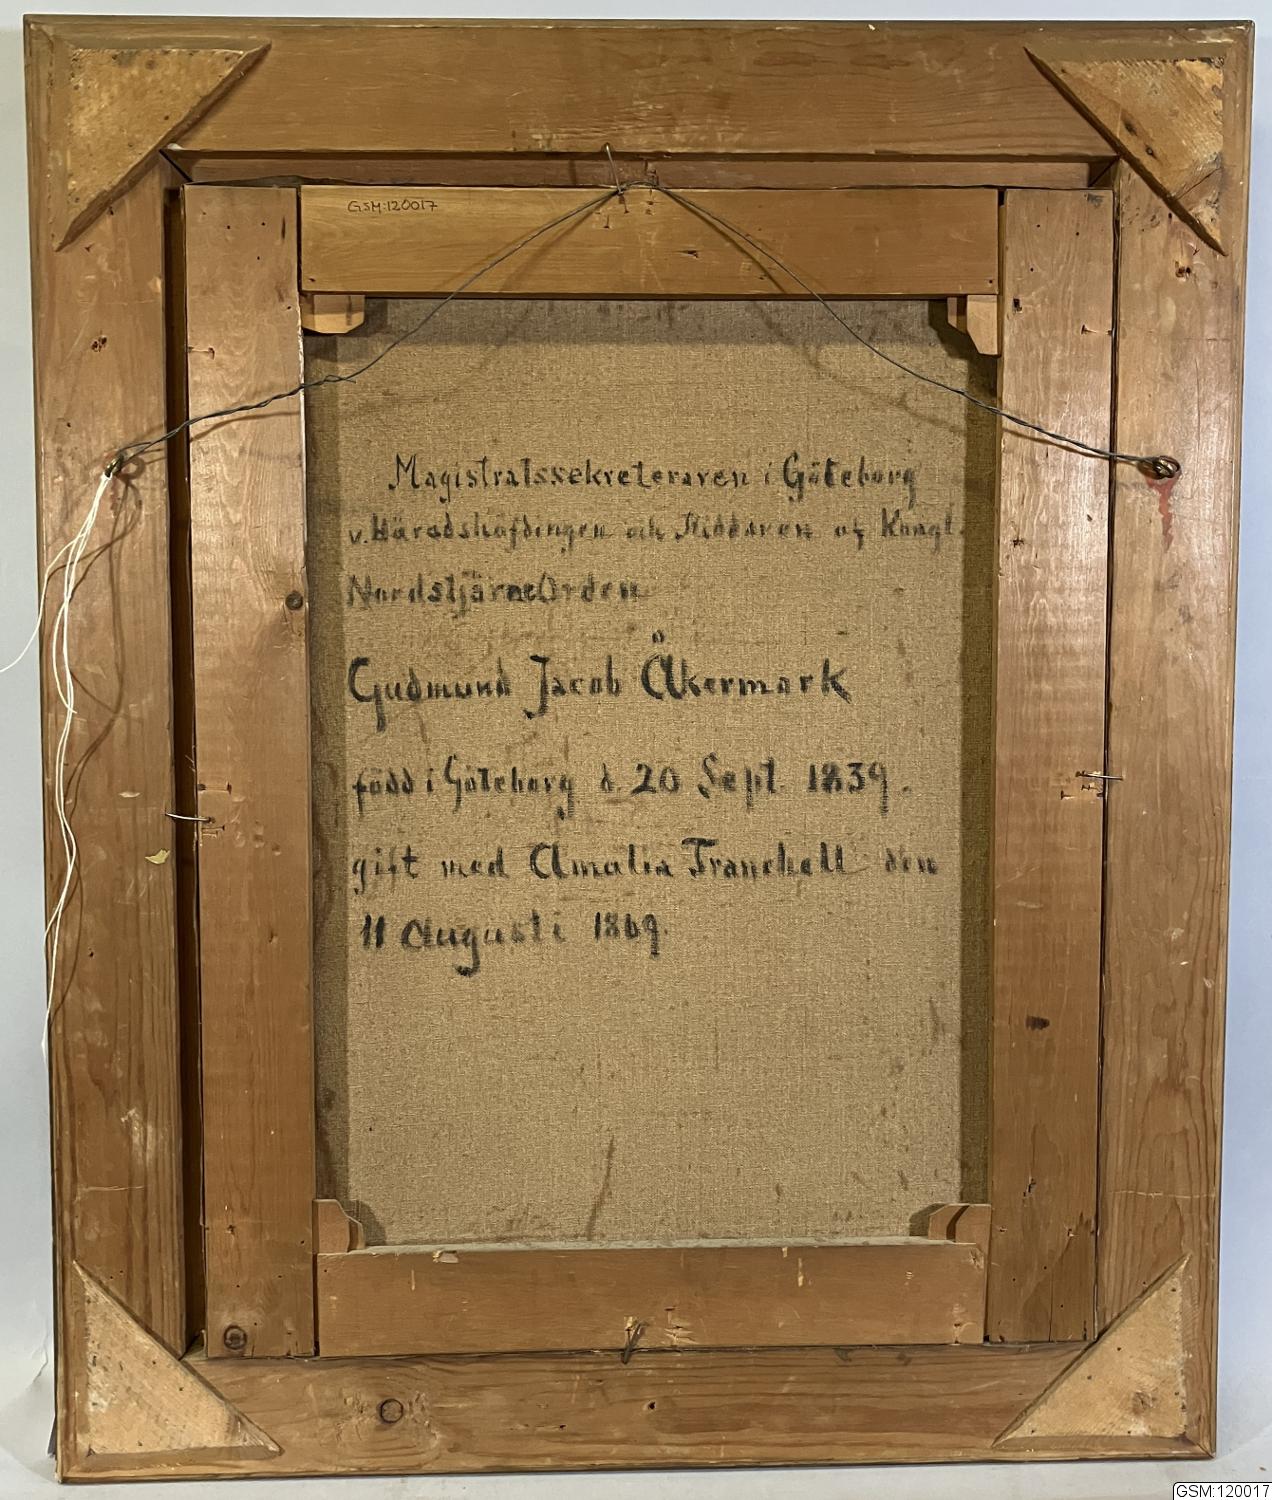 GSM:120017
Magistratssekreteraren i Göteborg
v. Häradshöfdingen och Riddaren af Kongl.
NordstjärneOrden
Gudmund Jacob Åkermark
född i Göteborg d. 20 Sept. 1839.
gift med Amalia Tranchell den
11 Augusti 1869.
GSM:120017